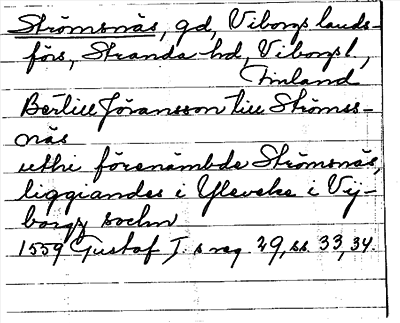 Strömsnäs, gd, Viborgs lands-
förs, Stranda hd, Viborgs l.,
Finland
Bertill Jöransson till Strömss-
näs
uthi förenämbde Strömsnäs,
liggiandes i Yleveke i Vij-
borgz sochn
1559 Gustaf I. s reg. 29, ss. 33, 34.